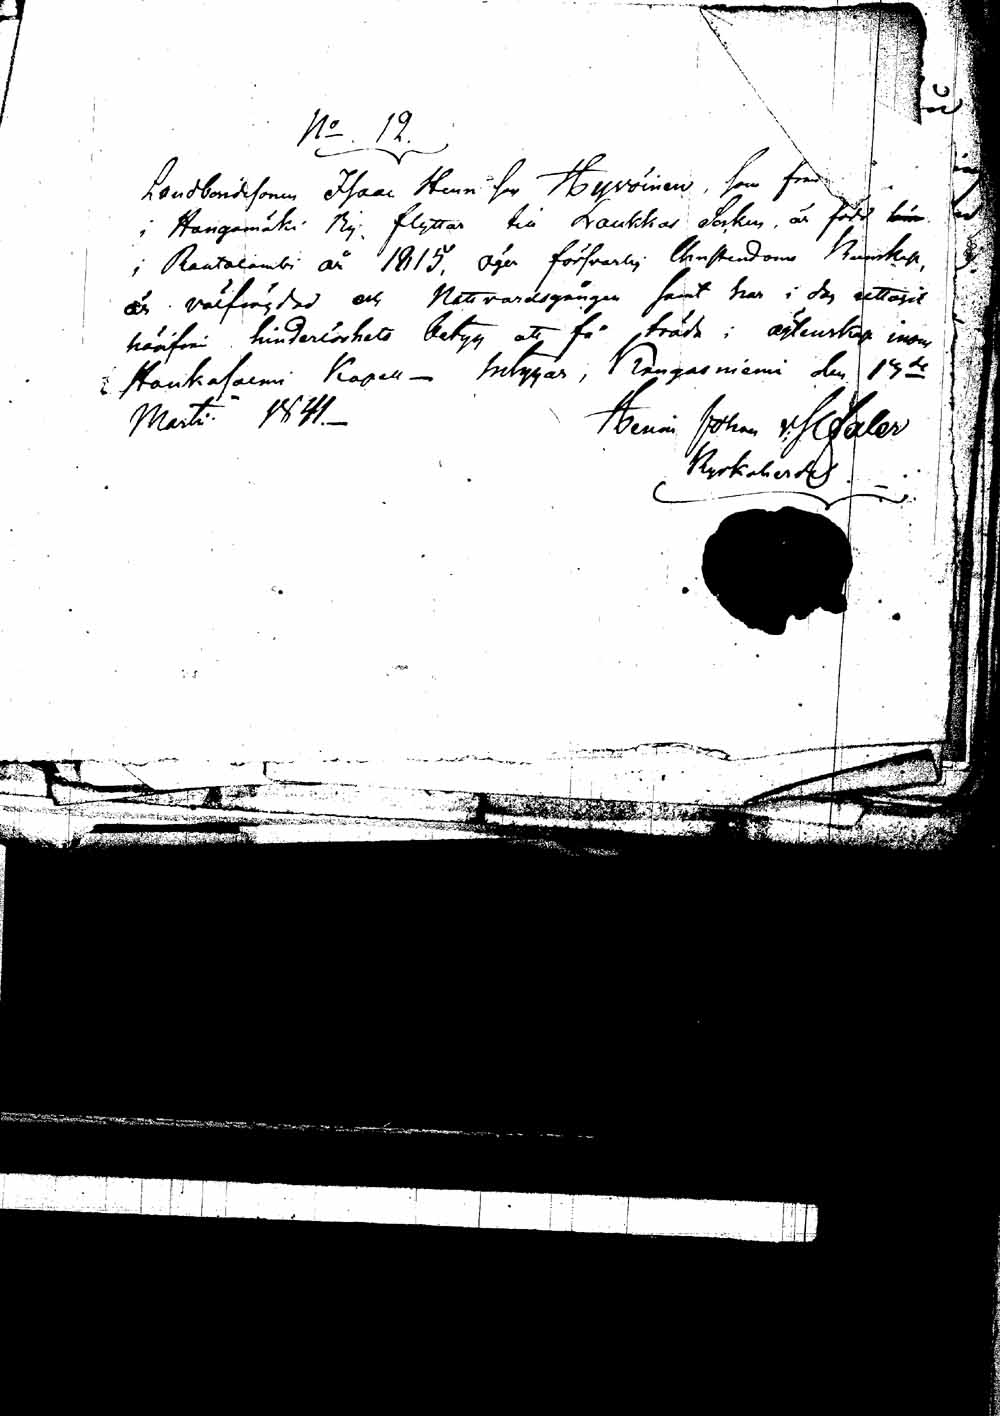 No 12.
Landbondesonen Isaac Henr:son Hyvöinen, som från
i Hangamäki By, flyttar till Laukkas Socken, är född
i Rautalambi år 1815, äger försvarlig Christendoms Kunskap,
är välfrägdad och Nattvardsgången samt har i dag uttagit
härifrån hinderlöshets betyg att få träda i äktenskap inom
Hankasalmi Kapell – betygar, Kangasniemi den 19de
Martii 1841.– Henric Johan
Kyrkoherde